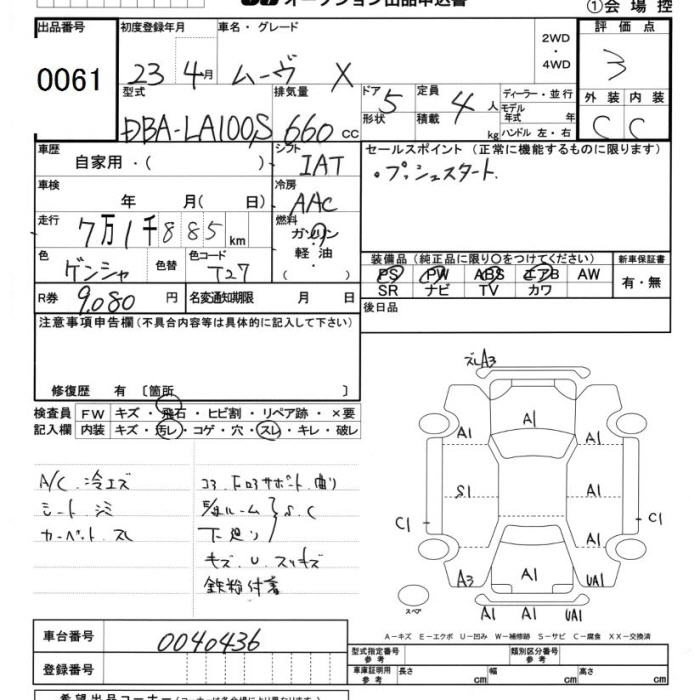 オークション出品申込書
①会場控
出品番号
0061
初度登録年月
23 4月
車名・グレード
ムーヴ X
2WD
・
4WD
評価点
3
型式
DBA-LA100S
排気量
660 cc
ドア
形状
5
定員
積載
4 人
kg
ディーラー・並行
モデル
年式 年
ハンドル 左・右
外装 内装
C C
車歴
自家用・( )
シフト
IAT
セールスポイント (正常に機能するものに限ります)
・プッシュスタート
車検
年 月(日)
冷房
AAC
走行
7万1千885 km
燃料
ガソリン
・
軽油
・
色
ゲンシャ
色替
色コード
T27
装備品 (純正品に限り〇をつけてください)
新車保証書
PS PW ABS エアB AW
SR ナビ TV カワ
有・無
R券
9,080 円
名変通知期限 月 日
後日品
注意事項申告欄 (不具合内容等は具体的に記入して下さい)
修復歴 有 〔箇所 〕
検査員
記入欄
FW キズ・飛石・ヒビ割・リペア跡・×要
内装 キズ・汚レ・コゲ・穴・スレ・キレ・破レ
A/C 冷エズ
シート シミ
カーペット スレ
コアサポート 曲り
ルーム
下廻り
S.C
キズ U スリキズ
鉄粉付着
ズレA3
A1
A1
A1
S1
A1
C1
C1
A1
A3
A1
UA1
A1 A1 UA1
スペア
A-キズ E-エクボ U-凹み W-補修跡 S-サビ C-腐食 XX-交換済
車台番号
0040436
登録番号
型式指定番号
参考
類別区分番号
参考
車庫証明用
参考
長さ cm
幅 cm
高さ cm
希望出品コーナー